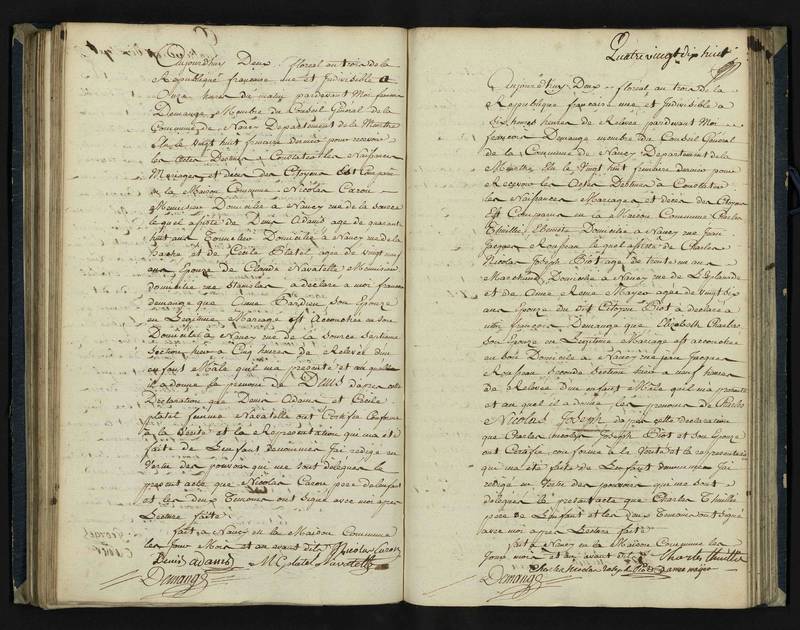 Aujourdhuy Deux floreal an trois de la
Republique francaise une et Indivisible a
Onze heures du matin pardevant Moi francois
Demange Membre du Conseil Général de la
Commune de Nancy Departement de la Meurthe
Elu le vingt huit frimaire dernier pour recevoir
les Actes Destinés a Constater les Naissances
Mariages et deces des Citoyens Est Comparu
en la Maison Commune Nicolas Caron
Menuisier Domicilié a Nancy rue de la source
le quel assisté de Denis Adams age de quarante
huit ans Tonnelier Domicilié a Nancy rue de la
hache et de Cécile Platel agée de vingt neuf
ans Epouse de Claude Navatelle Menuisier
domicilié rue Stanislas a déclaré a moi francois
demange que Anne Bardieu son Epouse
en Legitime Mariage est Accouchée en son
Domicile a Nancy rue de la source Septieme
Section hier a Cinq heures de Relevé d'un
enfant Male quil ma présenté et au quel
il a donné le prenom de Denis d'apres cette
Declaration que Denis Adams et Cécile
platel femme Navatelle ont Certifié Conforme
a la Verité et la Representation qui ma été
faite de Lenfant denommé Jai redigé en
Vertu des pouvoirs qui me sont délégués le
present acte que Nicolas Caron pere de lenfant
et les deux Temoins ont Signé avec moi apres
Lecture faite
fait a Nancy en la Maison Commune
les Jour Mois et an avant dits Nicolas Caron
Denis adams M C platel Navatelle
Demange
Quatre vingt dix huit
Aujourd'huy Deux floreal an trois de la
Republique francaise une et Indivisible a
Six heures de Relevé pardevant Moi
francois Demange membre du Conseil Général
de la Commune de Nancy Departement de la
Meurthe Elu le Vingt huit frimaire dernier pour
Recevoir les Actes Destinés a Constater
les Naissances Mariages et décès des Citoyens
Est Comparu en la Maison Commune Charles
Thuillié Ebeniste Domicilié a Nancy rue Jean
Jacques Rousseau le quel assisté de Charles
Nicolas Joseph Biot age de trente un ans
Marchand Domicilié a Nancy rue de L'Esplanade
et de Anne Reine Mayer agée de Vingt six
ans Epouse du dit Citoyen Biot a déclaré a
moi francois Demange que Elizabeth Charles
son Epouse en Legitime Mariage est accouchée
en son Domicile a Nancy rue jean Jacques
Rousseau Seconde Section hier a neuf heures
de Relevée d'un enfant Male quil ma presenté
et au quel il a donné les prenoms de Charles
Nicolas Joseph d'apres cette declaration
que Charles Nicolas Joseph Biot et son Epouse
ont Certifié conforme a la Verité et la representation
qui ma été faite de Lenfant denommé Jai
redigé en Vertu des pouvoirs qui me sont
délégués le present acte que Charles Thuillié
pere de Lenfant et les deux Temoins ont signé
avec moi apres Lecture faite
fait a Nancy en la Maison Commune les
Jour mois et an avant dits Charles thuillié
Charles Nicolas Joseph Biot anne mayer
Demange